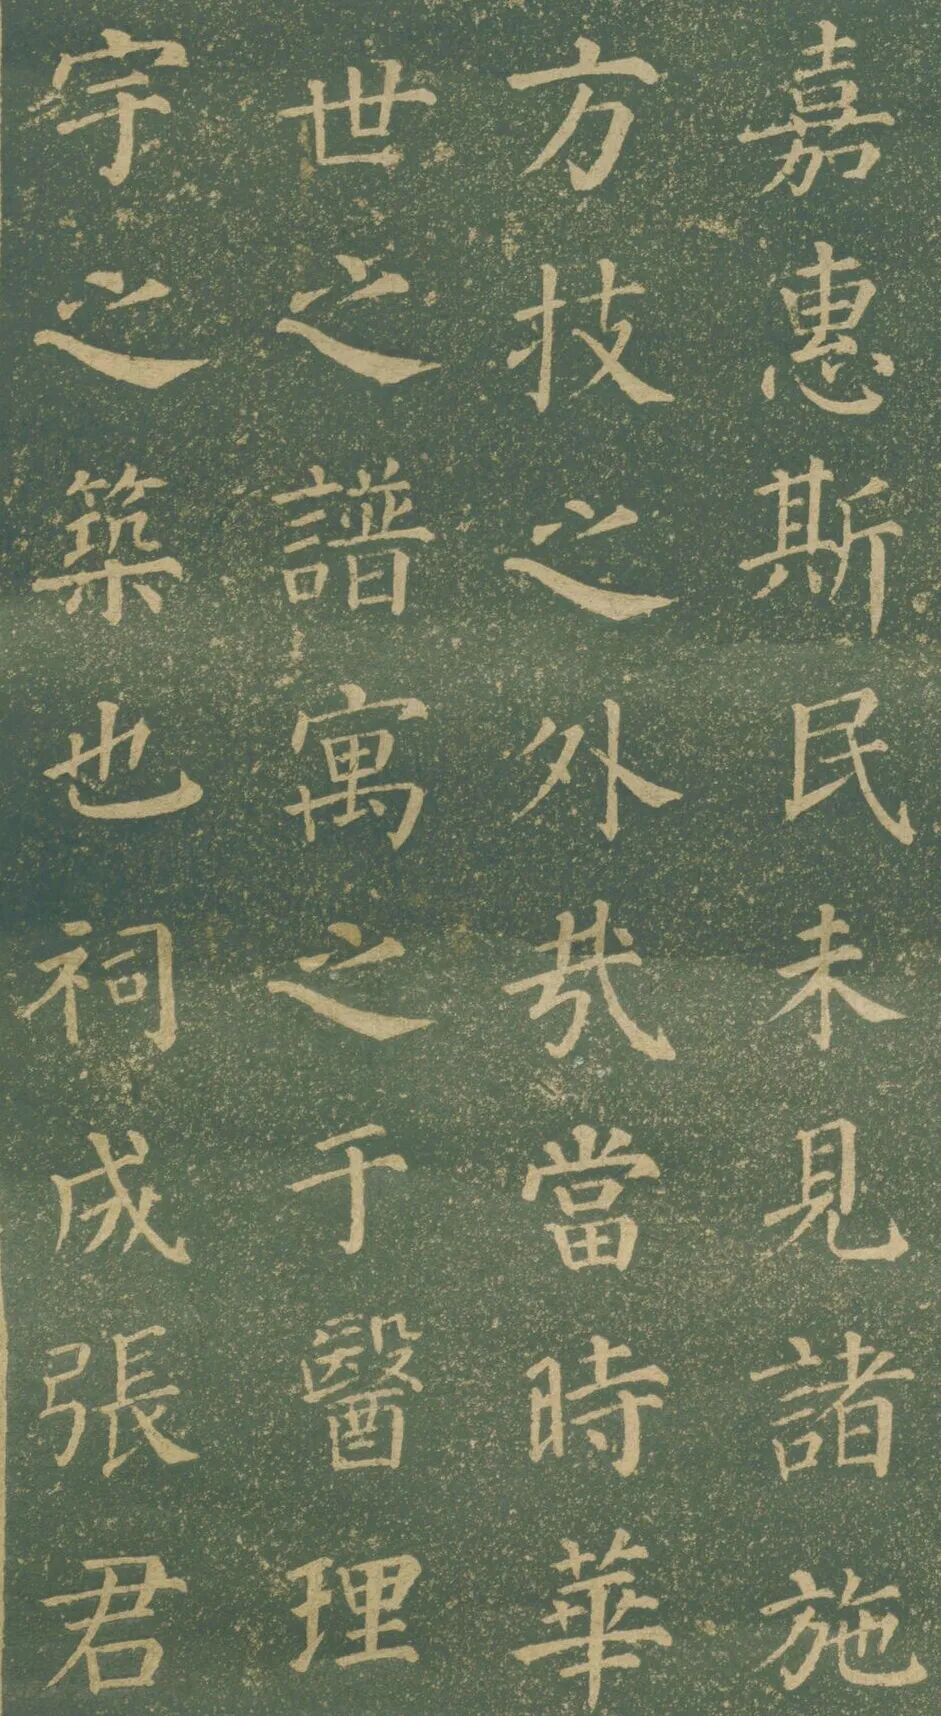 嘉惠斯民未見諸施
方技之外㢤當時華
世之譜寓之于醫理
宇之築也祠成張君